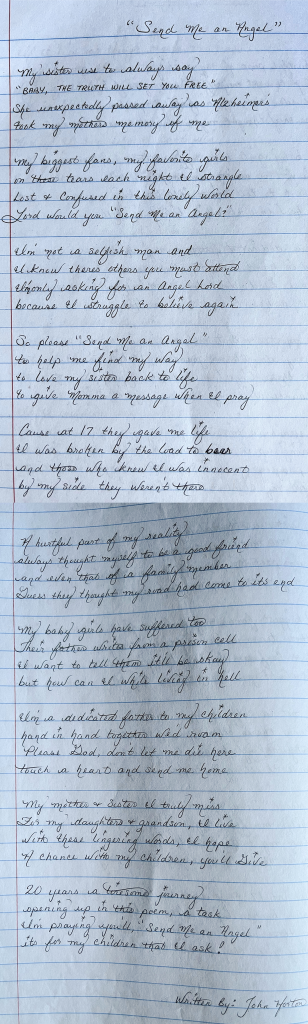 "Send Me an Angel"
My sister use to always say
"BABY, THE TRUTH WILL SET YOU FREE"
She unexpectedly passed away as Alzheimer's
took my mothers memory of me
My biggest fans, my favorite girls
on these tears each night I strangle
Lost & Confused in this lonely world
Lord would you "Send Me an Angel?"
I'm not a selfish man and
I know theres others you must attend
I'm only asking for an Angel Lord
because I struggle to believe again
So please "Send Me an Angel"
to help me find my way
to love my sister back to life
to give Momma a message when I pray
Cause at 17 they gave me life
I was broken by the load to bear
and those who knew I was innocent
by my side they weren't there
A hurtful part of my reality
always thought myself to be a good friend
and even that of a family member
Guess they thought my road had come to its end
My baby girls have suffered too
Their father writes from a prison cell
I want to tell them itll be okay
but how can I while living in hell
I'm a dedicated father to my children
hand in hand together we'd roam
Please God, don't let me die here
touch a heart and send me home
My mother & sister I truly miss
For my daughters & grandson, I live
With these lingering words, I hope
A chance with my children, you'll Give
20 years a tiresome journey
opening up in this poem, a task
I'm praying you'll "Send Me an Angel"
its for my children that I ask!
Written By: John Horton